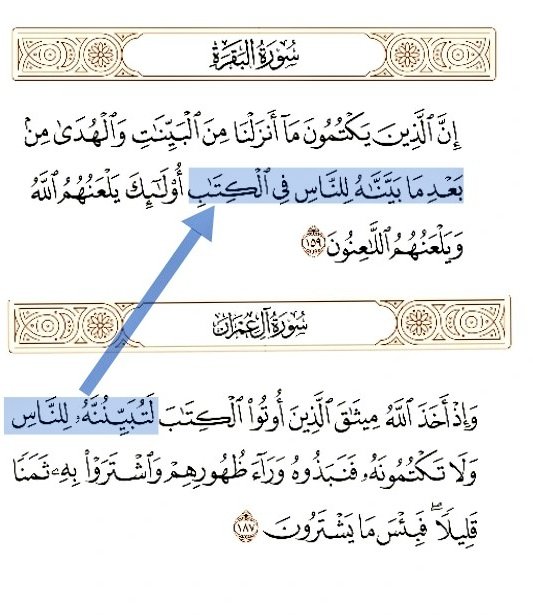 سُورَةُ البَقَرَةِ
إِنَّ ٱلَّذِينَ يَكۡتُمُونَ مَآ أَنزَلۡنَا مِنَ ٱلۡبَيِّنَٰتِ وَٱلۡهُدَىٰ مِنۢ
بَعۡدِ مَا بَيَّنَّٰهُ لِلنَّاسِ فِي ٱلۡكِتَٰبِ أُوْلَٰٓئِكَ يَلۡعَنُهُمُ ٱللَّهُ
وَيَلۡعَنُهُمُ ٱللَّٰعِنُونَ ١٥٩
سُورَةُ آلِ عِمۡرَانَ
وَإِذۡ أَخَذَ ٱللَّهُ مِيثَٰقَ ٱلَّذِينَ أُوتُواْ ٱلۡكِتَٰبَ لَتُبَيِّنُنَّهُۥ لِلنَّاسِ
وَلَا تَكۡتُمُونَهُۥ فَنَبَذُوهُ وَرَآءَ ظُهُورِهِمۡ وَٱشۡتَرَوۡاْ بِهِۦ ثَمَنٗا
قَلِيلٗاۖ فَبِئۡسَ مَا يَشۡتَرُونَ ١٨٧